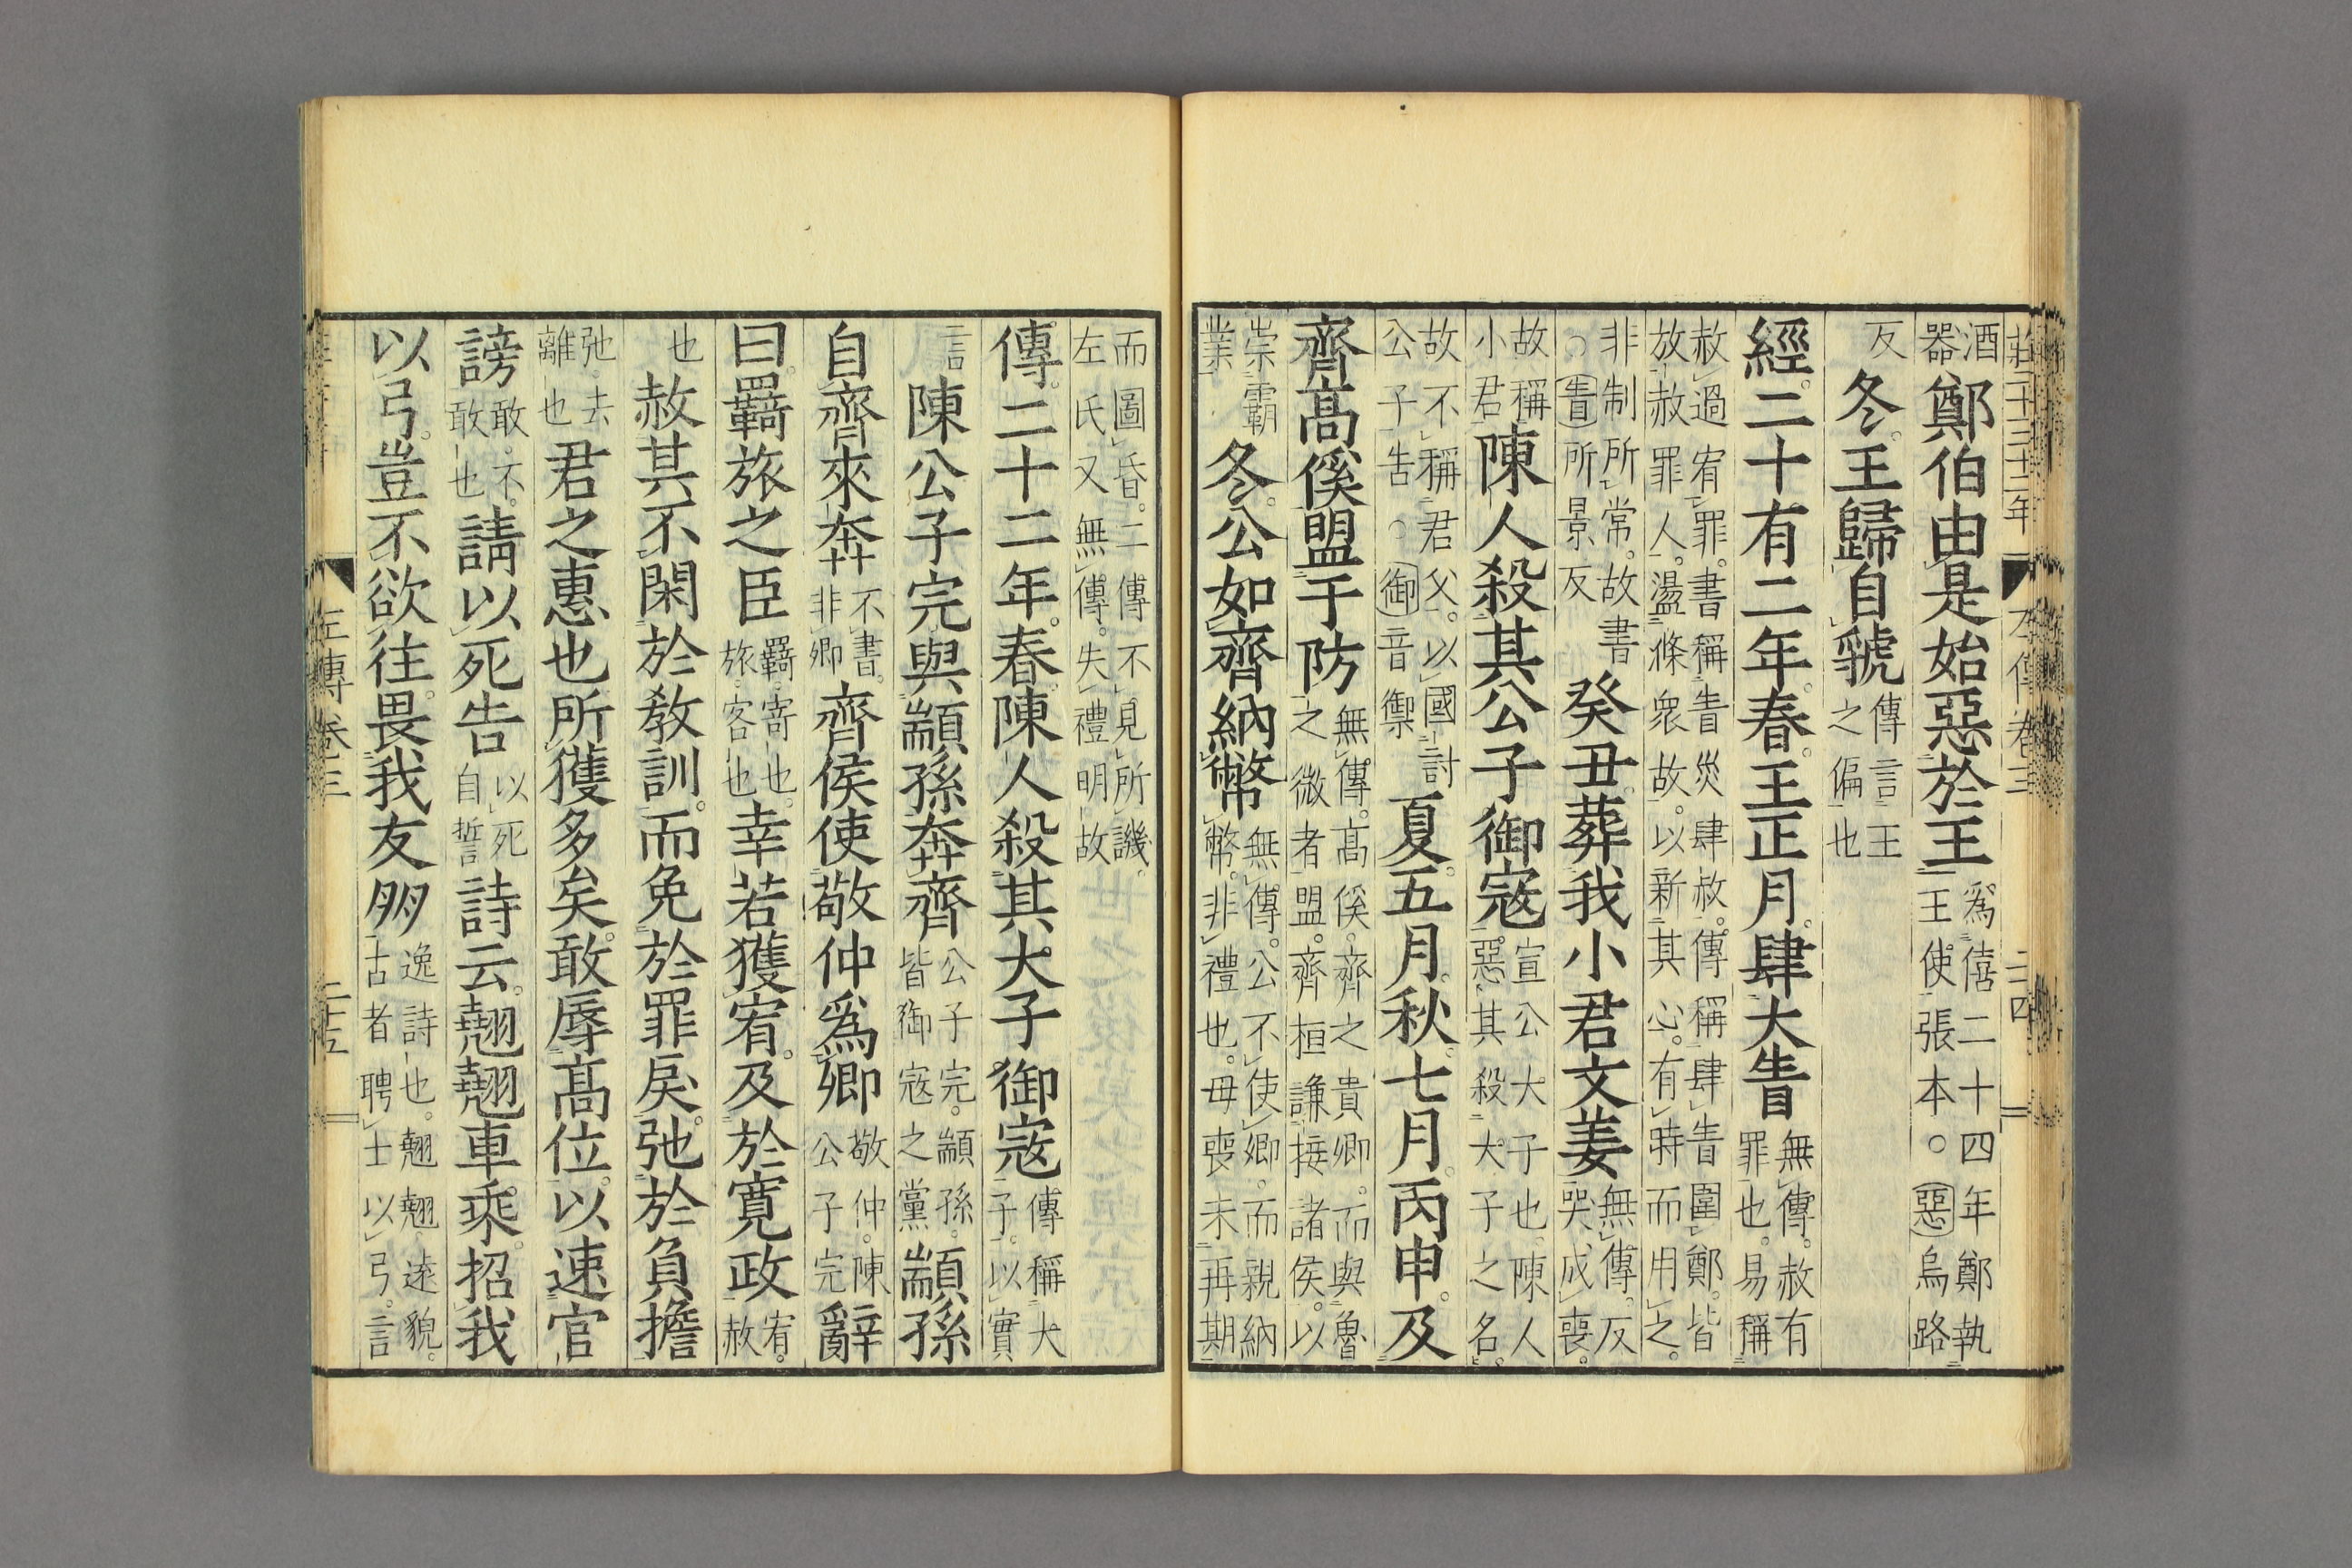 莊二十三十二年 左傳卷三 二四
酒器鄭伯由是始惡於王爲僖二十四年鄭執王使張本○惡烏路
反冬王歸自虢傳言王之偏也
經二十有二年春王正月肆大眚無傳赦有罪也易稱
赦過宥罪書稱眚災肆赦傳稱肆眚圍鄭皆放赦罪人盪滌衆故以新其心有時而用之
非制所常故書○眚所景反癸丑葬我小君文姜無傳反哭成喪
故稱小君陳人殺其公子御寇宣公大子也陳人惡其殺大子之名
故不稱君父以國討公子告○御音禦夏五月秋七月丙申及
齊高傒盟于防無傳高傒齊之貴卿而與魯之微者盟齊桓謙接諸侯以
崇霸業冬公如齊納幣無傳公不使卿而親納幣非禮也母喪未再期
而圖昏二傳不見所譏左氏又無傳失禮明故
傳二十二年春陳人殺其大子御寇傳稱大子以實
言陳公子完與顓孫奔齊公子完顓孫皆御寇之黨顓孫
自齊來奔不書非卿齊侯使敬仲爲卿敬仲陳公子完辭
曰羇旅之臣羇寄也旅客也幸若獲宥及於寬政宥赦
也赦其不閑於敎訓而免於罪戾弛於負擔
弛去離也君之惠也所獲多矣敢辱高位以速官
謗敢不敢也請以死告以死自誓詩云翹翹車乘招我
以弓豈不欲往畏我友朋逸詩也翹翹遠貌古者聘士以弓言
左傳卷三 二十五